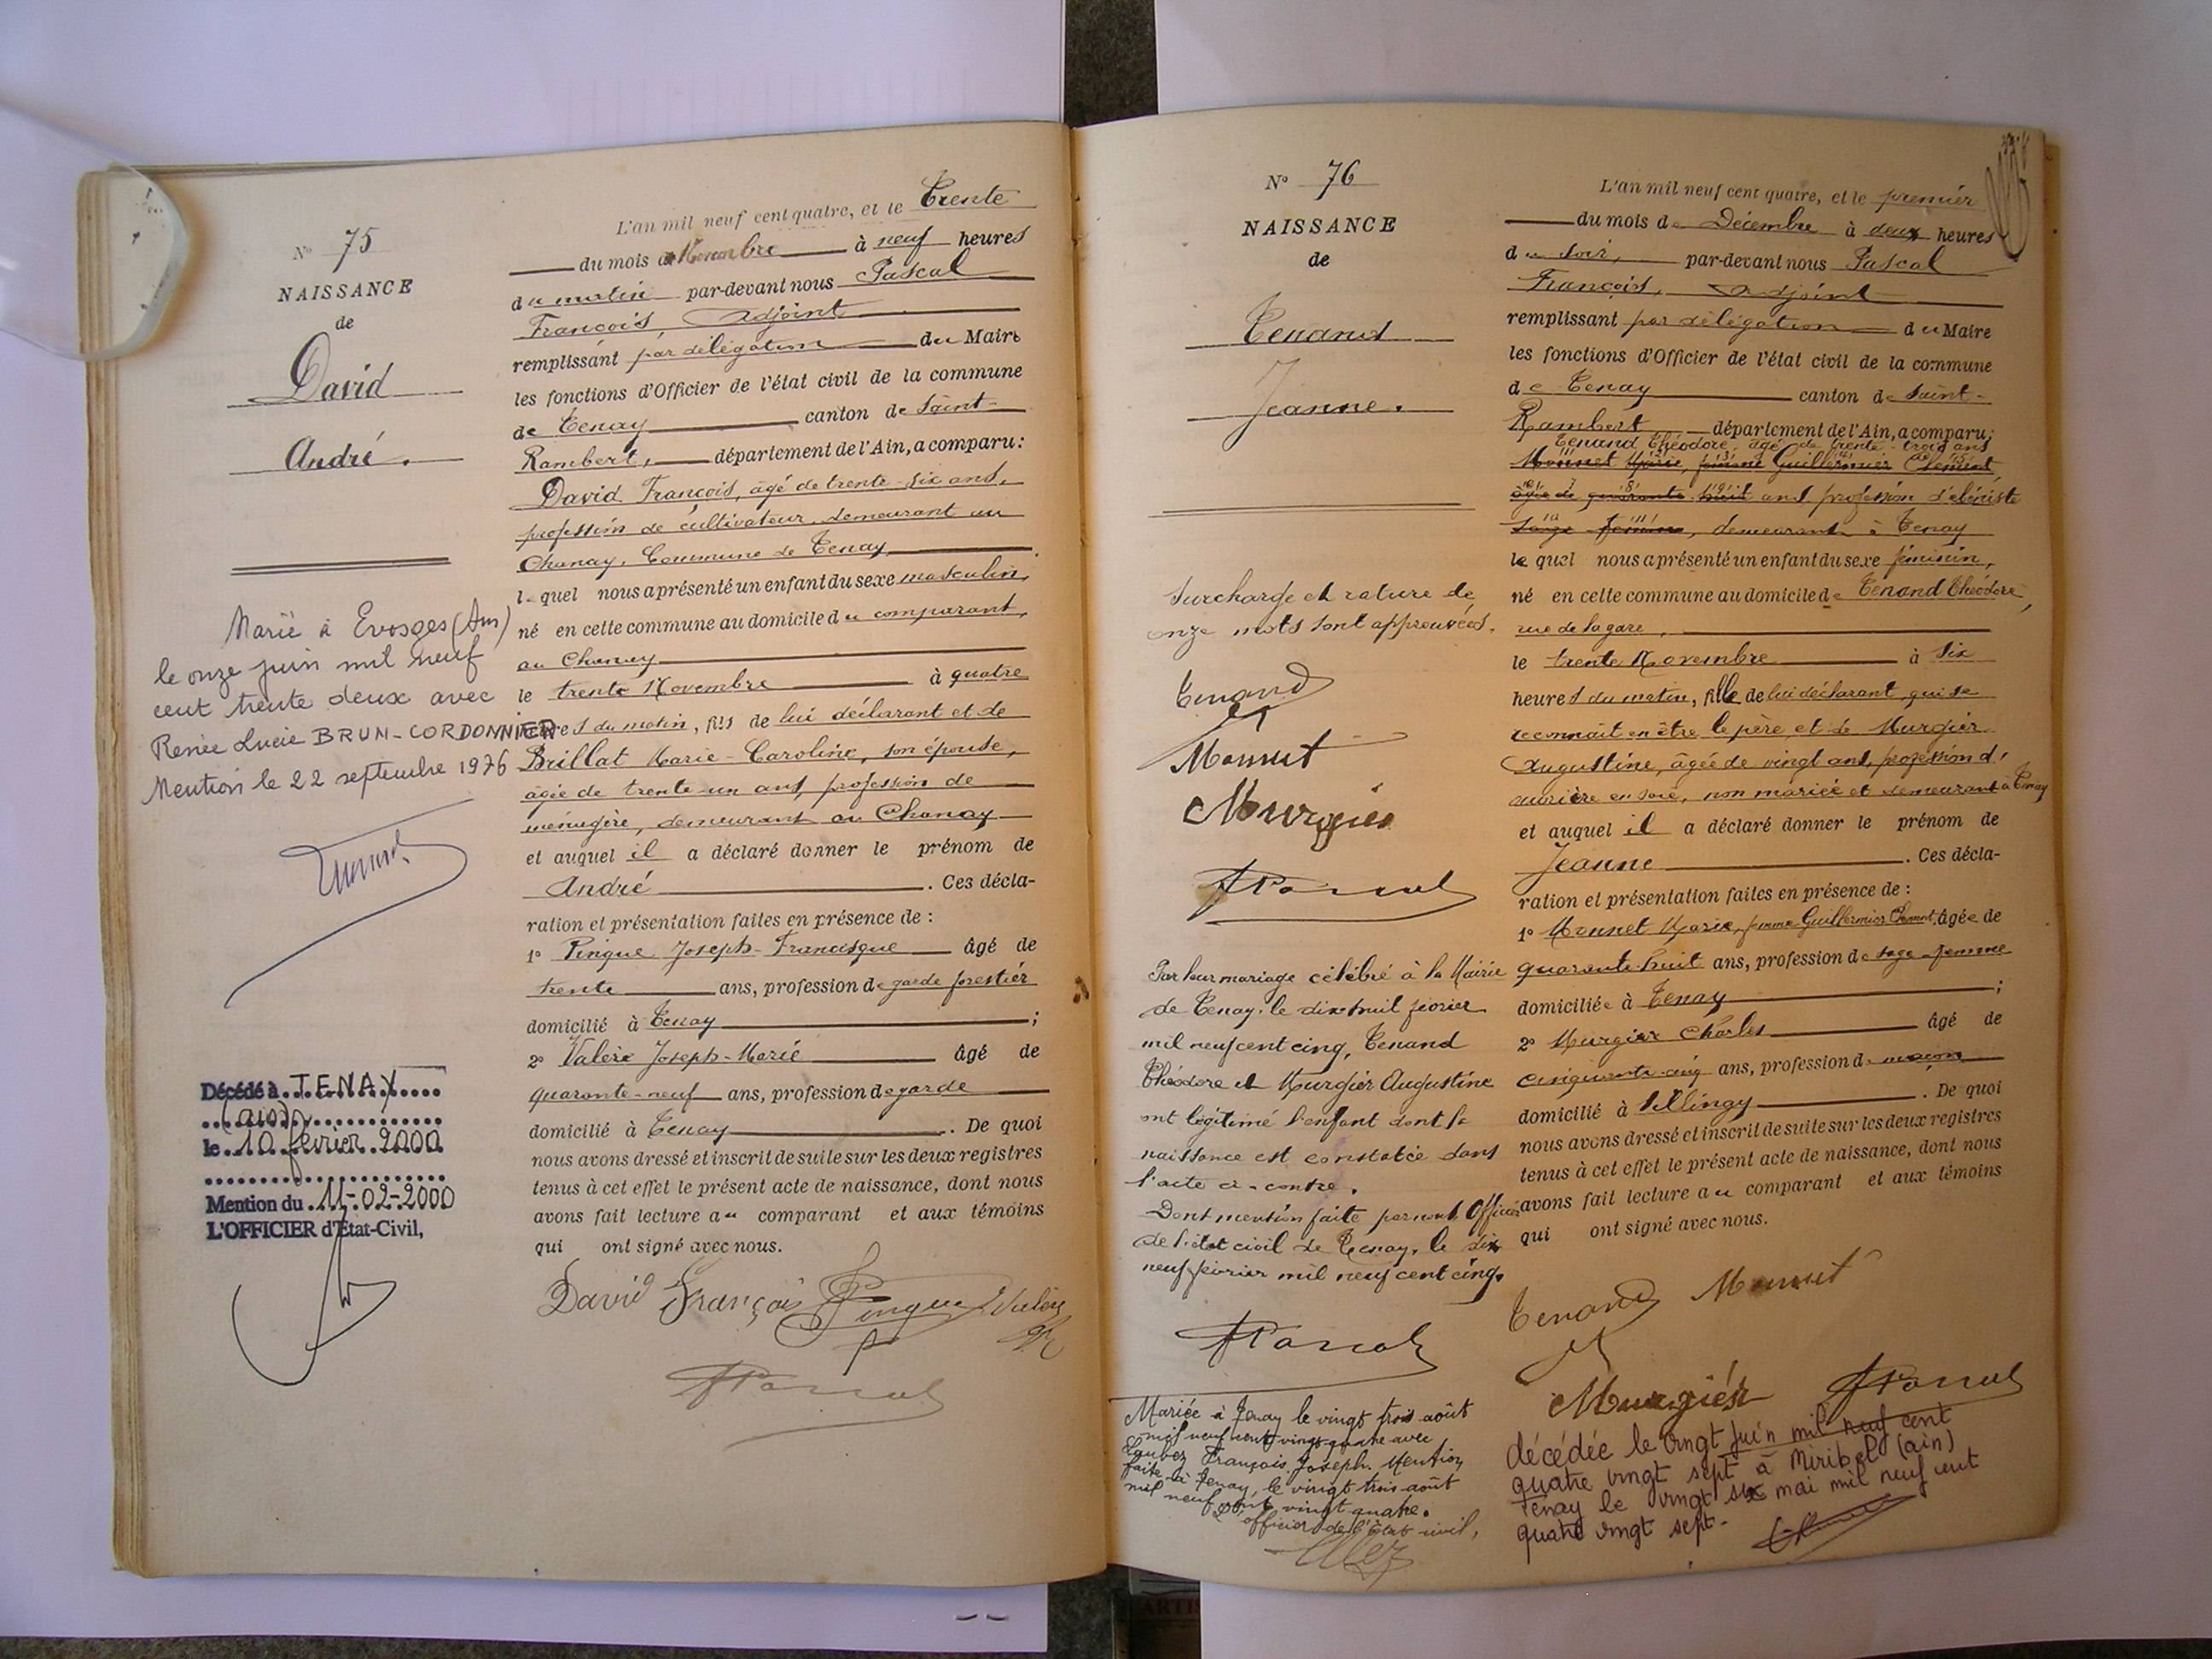 N° 75
NAISSANCE
de
David
André.
Marié à Evosges (Ain)
le onze juin mil neuf
cent trente deux avec
Renée Lucie BRUN-CORDONNIER
Mention le 22 septembre 1976
Décédé à TENAY
(ain)
le 10 février 2000
Mention du 11-02-2000
L'OFFICIER d'Etat-Civil,
L'an mil neuf cent quatre, et le Trente
du mois de Novembre à neuf heures
du matin par-devant nous Pascal
François, Adjoint
remplissant par délégation du Maire
les fonctions d'Officier de l'état civil de la commune
de Tenay canton de Saint-
Rambert, département de l'Ain, a comparu:
David François, âgé de trente-six ans,
profession de cultivateur, demeurant au
Chanay, Commune de Tenay
lequel nous a présenté un enfant du sexe masculin,
né en cette commune au domicile du comparant,
au Chanay
le trente Novembre à quatre
heures du matin, fils de lui déclarant et de
Brillat Marie-Caroline, son épouse,
âgée de trente-un ans, profession de
ménagère, demeurant au Chanay
et auquel il a déclaré donner le prénom de
André. Ces décla-
ration et présentation faites en présence de :
1° Pingue Joseph-Francisque âgé de
trente ans, profession de garde forestier
domicilié à Tenay ;
2° Valère Joseph-Marie âgé de
quarante-neuf ans, profession de garde
domicilié à Tenay. De quoi
nous avons dressé et inscrit de suite sur les deux registres
tenus à cet effet le présent acte de naissance, dont nous
avons fait lecture au comparant et aux témoins
qui ont signé avec nous.
David François Pingue Valère
FPascal
N° 76
NAISSANCE
de
Tenand
Jeanne.
Surcharge et rature de
onze mots sont approuvées.
Tenand
Monnet
Murgier
FPascal
Par leur mariage célébré à la Mairie
de Tenay, le dix huit février
mil neuf cent cinq, Tenand
Théodore et Murgier Augustine
ont légitimé l'enfant dont la
naissance est constatée dans
l'acte ci-contre.
Dont mention faite par nous Officier
de l'état civil de Tenay, le dix
neuf février mil neuf cent cinq.
FPascal
Mariée à Tenay le vingt trois août
mil neuf cent vingt quatre avec
François Joseph. Mention
faite à Tenay, le vingt trois août
mil neuf cent vingt quatre.
L'officier de l'état civil,
L'an mil neuf cent quatre, et le premier
du mois de Décembre à deux heures
du soir, par-devant nous Pascal
François, Adjoint
remplissant par délégation du Maire
les fonctions d'Officier de l'état civil de la commune
de Tenay canton de Saint-
Rambert département de l'Ain, a comparu:
Tenand Théodore, âgé de trente-trois ans
Monnet Marie, femme Guillermier Clément,
âgée de quarante-huit ans profession d'ébéniste
sage-femme, demeurant à Tenay
lequel nous a présenté un enfant du sexe féminin,
né en cette commune au domicile de Tenand Théodore,
rue de la gare,
le trente Novembre à six
heures du matin, fille de lui déclarant, qui se
reconnaît en être le père, et de Murgier
Augustine, âgée de vingt ans, profession d'
ouvrière en soie, non mariée et demeurant à Tenay
et auquel il a déclaré donner le prénom de
Jeanne. Ces décla-
ration et présentation faites en présence de :
1° Monnet Marie, femme Guillermier Clément, âgée de
quarante-huit ans, profession de sage-femme
domiciliée à Tenay ;
2° Murgier Charles âgé de
cinquante-cinq ans, profession de maçon
domicilié à. De quoi
nous avons dressé et inscrit de suite sur les deux registres
tenus à cet effet le présent acte de naissance, dont nous
avons fait lecture au comparant et aux témoins
qui ont signé avec nous.
Tenand Monnet
Murgier FPascal
décédée le vingt juin mil neuf cent
quatre vingt sept à Miribel (ain)
Tenay le vingt six mai mil neuf cent
quatre vingt sept.